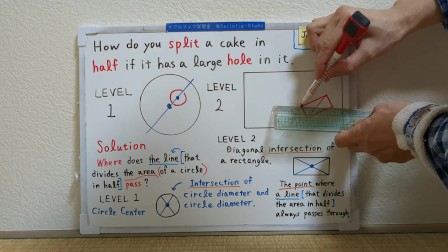 How do you split a cake in
half if it has a large hole in it.
LEVEL
1
LEVEL
2
Solution
Where does the line [that
divides the area (of a circle)
in half] pass?
LEVEL 1
Circle Center
Intersection of
circle diameter and
circle diameter.
LEVEL 2
Diagonal intersection of
a rectangle.
The point where
a line [that divides
the area in half]
always passes through